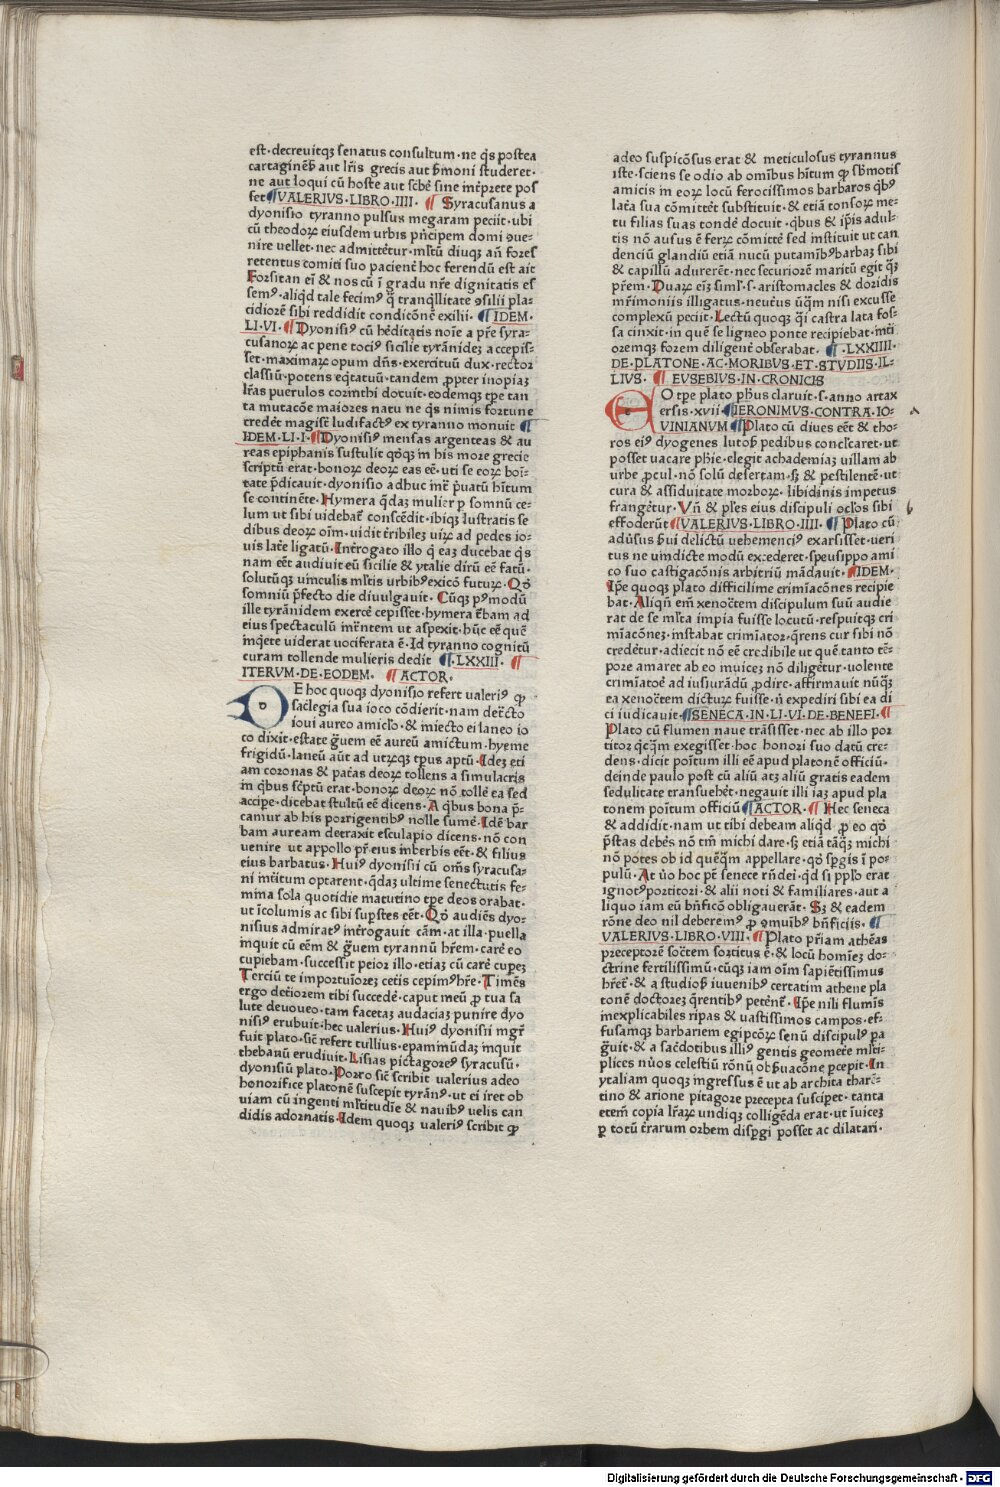 est·decreuitqꝫ senatus consultum·ne q̄s postea
cartaginēſ aut lr̄is grecis aut ſ̄moni studeret·
ne aut loqui cū hoste aut scb̄e sine īnterp̄te pos
set ¶VALERIVS·LIBRO·IIII· ¶ Syracusanus a
dyonisio tyranno pulsus megaram peciit·ubi
cū theodoꝝ eiusdem urbis pn̄cipem domi ꝯue-
nire uellet·nec admitteretur·ml̄tū diuqꝫ an̄ fores
retentus comiti suo pacient̄ hoc ferendū est ait
Forsitan ei & nos cū ī gradu nr̄e dignitatis es
sem⁹·aliqd̄ tale fecim⁹ q̄ tranqllitate ꝯsilii pla-
cidiorē sibi reddidit condicōnē exilii· ¶IDEM·
LI·VI· ¶ Dyonisi⁹ cū hēditatis noīe a pr̄e syra-
cusanoꝝ ac pene toci⁹ sicilie tyrānideꝫ accepis-
set·maximaꝝ opum dn̄s·exercituū dux·rector
classiū·potens eq̄tatuū·tandem ꝓpter inopiaꝫ
lr̄as puerulos corinthi docuit·eodemqꝫ tꝑe tan
ta mutacōe maiores natu ne q̄s nimis fortune
crederēt magist̄ ludifact⁹ ex tyranno monuit ¶
IDEM·LI·I· ¶Dyonisi⁹ mensas argenteas & au
reas epiphanis sustulit qōqꝫ in his more grecie
scriptū erat·bonoꝝ deoꝝ eas eē·uti se eoꝝ boī-
tate p̄dicauit·dyonisio adhuc int̄ p̄uatū hītum
se continēte·Hymera q̄daꝫ mulier ꝑ somnū ce-
lum ut sibi uidebat̄ conscēdit·ibiqꝫ lustratis se
dibus deoꝝ oīm·uidit t̄ribileꝫ uiꝝ ad pedes io-
uis late ligatū·Int̄rogato illo q̄ eaꝫ ducebat q̄s
nam eēt audiuit eū sicilie & ytalie dirū eē fatū·
solutūqꝫ uinculis ml̄tis urbib⁹ exicō futuꝝ·Qō
somniū p̄fecto die diuulgauit·Cūqꝫ p⁹modū
ille tyrānidem exercē cepisset·hymera t̄bam ad
eius spectaculū int̄ntem ut aspexit·hūc eē quē
inqete uiderat uociferata ē·Id tyranno cognitū
curam tollende mulieris dedit ¶·LXXIII· ¶
ITERVM·DE·EODEM· ¶ ACTOR·
DE hoc quoqꝫ dyonisio refert ualeri⁹ ꝙ
saclegia sua ioco cōdierit·nam det̄cto
ioui aureo amiclo·& iniecto ei laneo io
co dixit·estate ḡuem eē aureū amictum·hyeme
frigidū·laneū aūt ad utrꝫqꝫ tꝑus aptū·Ideꝫ eti
am coronas & pat̄as deoꝝ tollens a simulacris
in qbus sc̄ptū erat·bonoꝝ deoꝝ nō tolle ea sed
accipe·dicebat stultū eē dicens·A qbus bona p̄-
camur ab his porrigentib⁹ nolle sume·Idē bar
bam auream detraxit esculapio dicens·nō con
uenire ut appollo pr̄ eius inberbis eēt·& filius
eius barbatus·Hui⁹ dyonisii cū om̄s syracusa-
ni int̄itum optarent·q̄daꝫ ultime senectutis fe-
mina sola quotidie matutino tꝑe deos orabat·
ut īcolumis ac sibi supstes eēt·Qō audiēs dyo-
nisius admirat⁹ int̄rogauit cām·at illa·puella
inquit cū eēm & ḡuem tyrannū hr̄em·carē eo
cupiebam·successit peior illo·etiaꝫ cū carē cupeꝫ
Terciū te importuioreꝫ cet̄is cepim⁹hr̄e·Timēs
ergo det̄iorem tibi succedē·caput meū ꝓ tua sa
lute deuoueo·tam facetaꝫ audaciaꝫ punire dyo
nisi⁹ erubuit·hec ualerius·Hui⁹ dyonisii mgr̄
fuit plato·sic̄ refert tullius·epaminūdaꝫ inquit
thebanū erudiuit·Lisias pictagore⁹ syracusū·
dyonisiū plato·Porro sic̄ scribit ualerius adeo
honorifice platonē suscepit tyrān⁹·ut ei iret ob
uiam cū ingenti ml̄titudīe & nauib⁹ uelis can
didis adornatis·Idem quoqꝫ ualeri⁹ scribit ꝙ
adeo suspicōsus erat & meticulosus tyrannus
iste·sciens se odio ab omībus hītum ꝙ sb̄motis
amicis in eoꝝ locū ferocissimos barbaros qb⁹
lata sua cōmitt̄et substituit·& etiā tonsoꝝ me-
tu filias suas tondē docuit·qbus & ip̄is adul-
tis nō ausus ē ferꝝ cōmittē sed instituit ut can
denciū glandiū etiā nucū putamīb⁹barbaꝫ sibi
& capillū adurerēt·nec securiorē maritū egit q̄ꝫ
pr̄em·Duaꝝ eīꝫ siml̄·s·aristomacles & doridis
mr̄imoniis illigatus·neut̄ius ūq̄m nisi excusse
complexū peciit·Lectū quoqꝫ q̄i castra lata fos-
sa cinxit·in quē se ligneo ponte recipiebat·int̄i
oremqꝫ forem diligent̄ obserabat· ¶·LXXIIII·
DE·PLATONE·AC·MORIBVS·ET·STVDIIS·IL-
LIVS· ¶ EVSEBIVS·IN·CRONICIS
EO tꝑe plato ph̄us claruit·s·anno artax
ersis·xvii·¶IERONIMVS·CONTRA·IO-
VINIANVM ¶Plato cū diues eēt & tho-
ros ei⁹ dyogenes lutoſ pedibus conclcaret·ut
posset uacare ph̄ie·elegit achademiaꝫ uillam ab
urbe ꝓcul·nō solū desertam·sꝫ & pestilentē·ut
cura & assiduitate morboꝝ·libidinis impetus
frangēt̄ur·Vn̄ & pl̄es eius discipuli oclos sibi
effoderūt ¶VALERIVS·LIBRO·IIII· ¶ Plato cū
adūsus ſui delictū uehemenci⁹ exarsisset·ueri
tus ne uindicte modū excederet·speusippo ami
co suo castigacōnis arbitriū mādauit·¶IDEM·
Ip̄e quoqꝫ plato difficilime crimīacōnes recipie
bat·Aliqn̄ em̄ xenoc̄tem discipulum suū audie
rat de se ml̄ta impia fuisse locutū·respuitqꝫ cri
mīacōneꝫ·instabat crimīator·q̄rens cur sibi nō
credēt̄ur·adiecit nō eē credibile ut quē tanto tē-
pore amaret ab eo inuiceꝫ nō diligēt̄ur·uolente
crimīatoē ad iusiurādū ꝓdire·affirmauit nūqꝫ
ea xenoc̄tem dictuꝝ fuisse·n̄ expediri sibi ea di
ci iudicauit ¶SENECA·IN·LI·VI·DE·BENEFI·¶
Plato cū flumen naue trāsisset·nec ab illo por
titor qc̄qm exegisset·hoc honori suo datū cre-
dens·dicit poītum illi eē apud platonē officiū·
deinde paulo post cū aliū atꝫ aliū gratis eadem
sedulitate transuehēt·negauit illi iaꝫ apud pla
tonem poītum officiū ¶ACTOR·¶ Hec seneca
& addidit·nam ut tibi debeam aliqd̄ ꝓ eo qō
p̄stas debēs nō tm̄ michi dare·sꝫ etiā tāqꝫ michi
nō potes ob id quēq̄m appellare·qō sp̄gis ī po-
pulū·At ūo hoc pt̄ senece rn̄dei·qd̄ si pplo erat
ignot⁹portitori·& alii noti & familiares·aut a
liquo iam eū bn̄ficō obligauerāt·Sꝫ & eadem
rōne deo nil deberem⁹ ꝓ ꝯmuib⁹ bn̄ficiis· ¶
VALERIVS·LIBRO·VIII· ¶Plato pr̄iam athēas
preceptorē soc̄tem sortitus ē·& locū homīeꝫ do-
ctrine fertilissimū·cūqꝫ iam oīm sapiētissimus
hr̄et̄·& a studioſ iuuenib⁹ certatim athene pla
tonē doctoreꝫ q̄rentib⁹ petēnt̄·Ip̄e nili flumīs
inexplicabiles ripas & uastissimos campos·ef-
fusamqꝫ barbariem egipcōꝝ senū discipul⁹ ꝑa
ḡuit·& a sac̄dotibus illi⁹ gentis geomet̄e ml̄ti-
plices nūos celestiū rōnū obſuacōne pcepit·In
ytaliam quoqꝫ ingressus ē ut ab archita tharē-
tino & arione pitagore precepta suscipet·tanta
etem̄ copia lr̄aꝝ undiqꝫ colligēda erat·ut īuiceꝫ
ꝑ totū t̄rarum orbem disp̄gi posset ac dilatari·
Digitalisierung gefördert durch die Deutsche Forschungsgemeinschaft - DFG